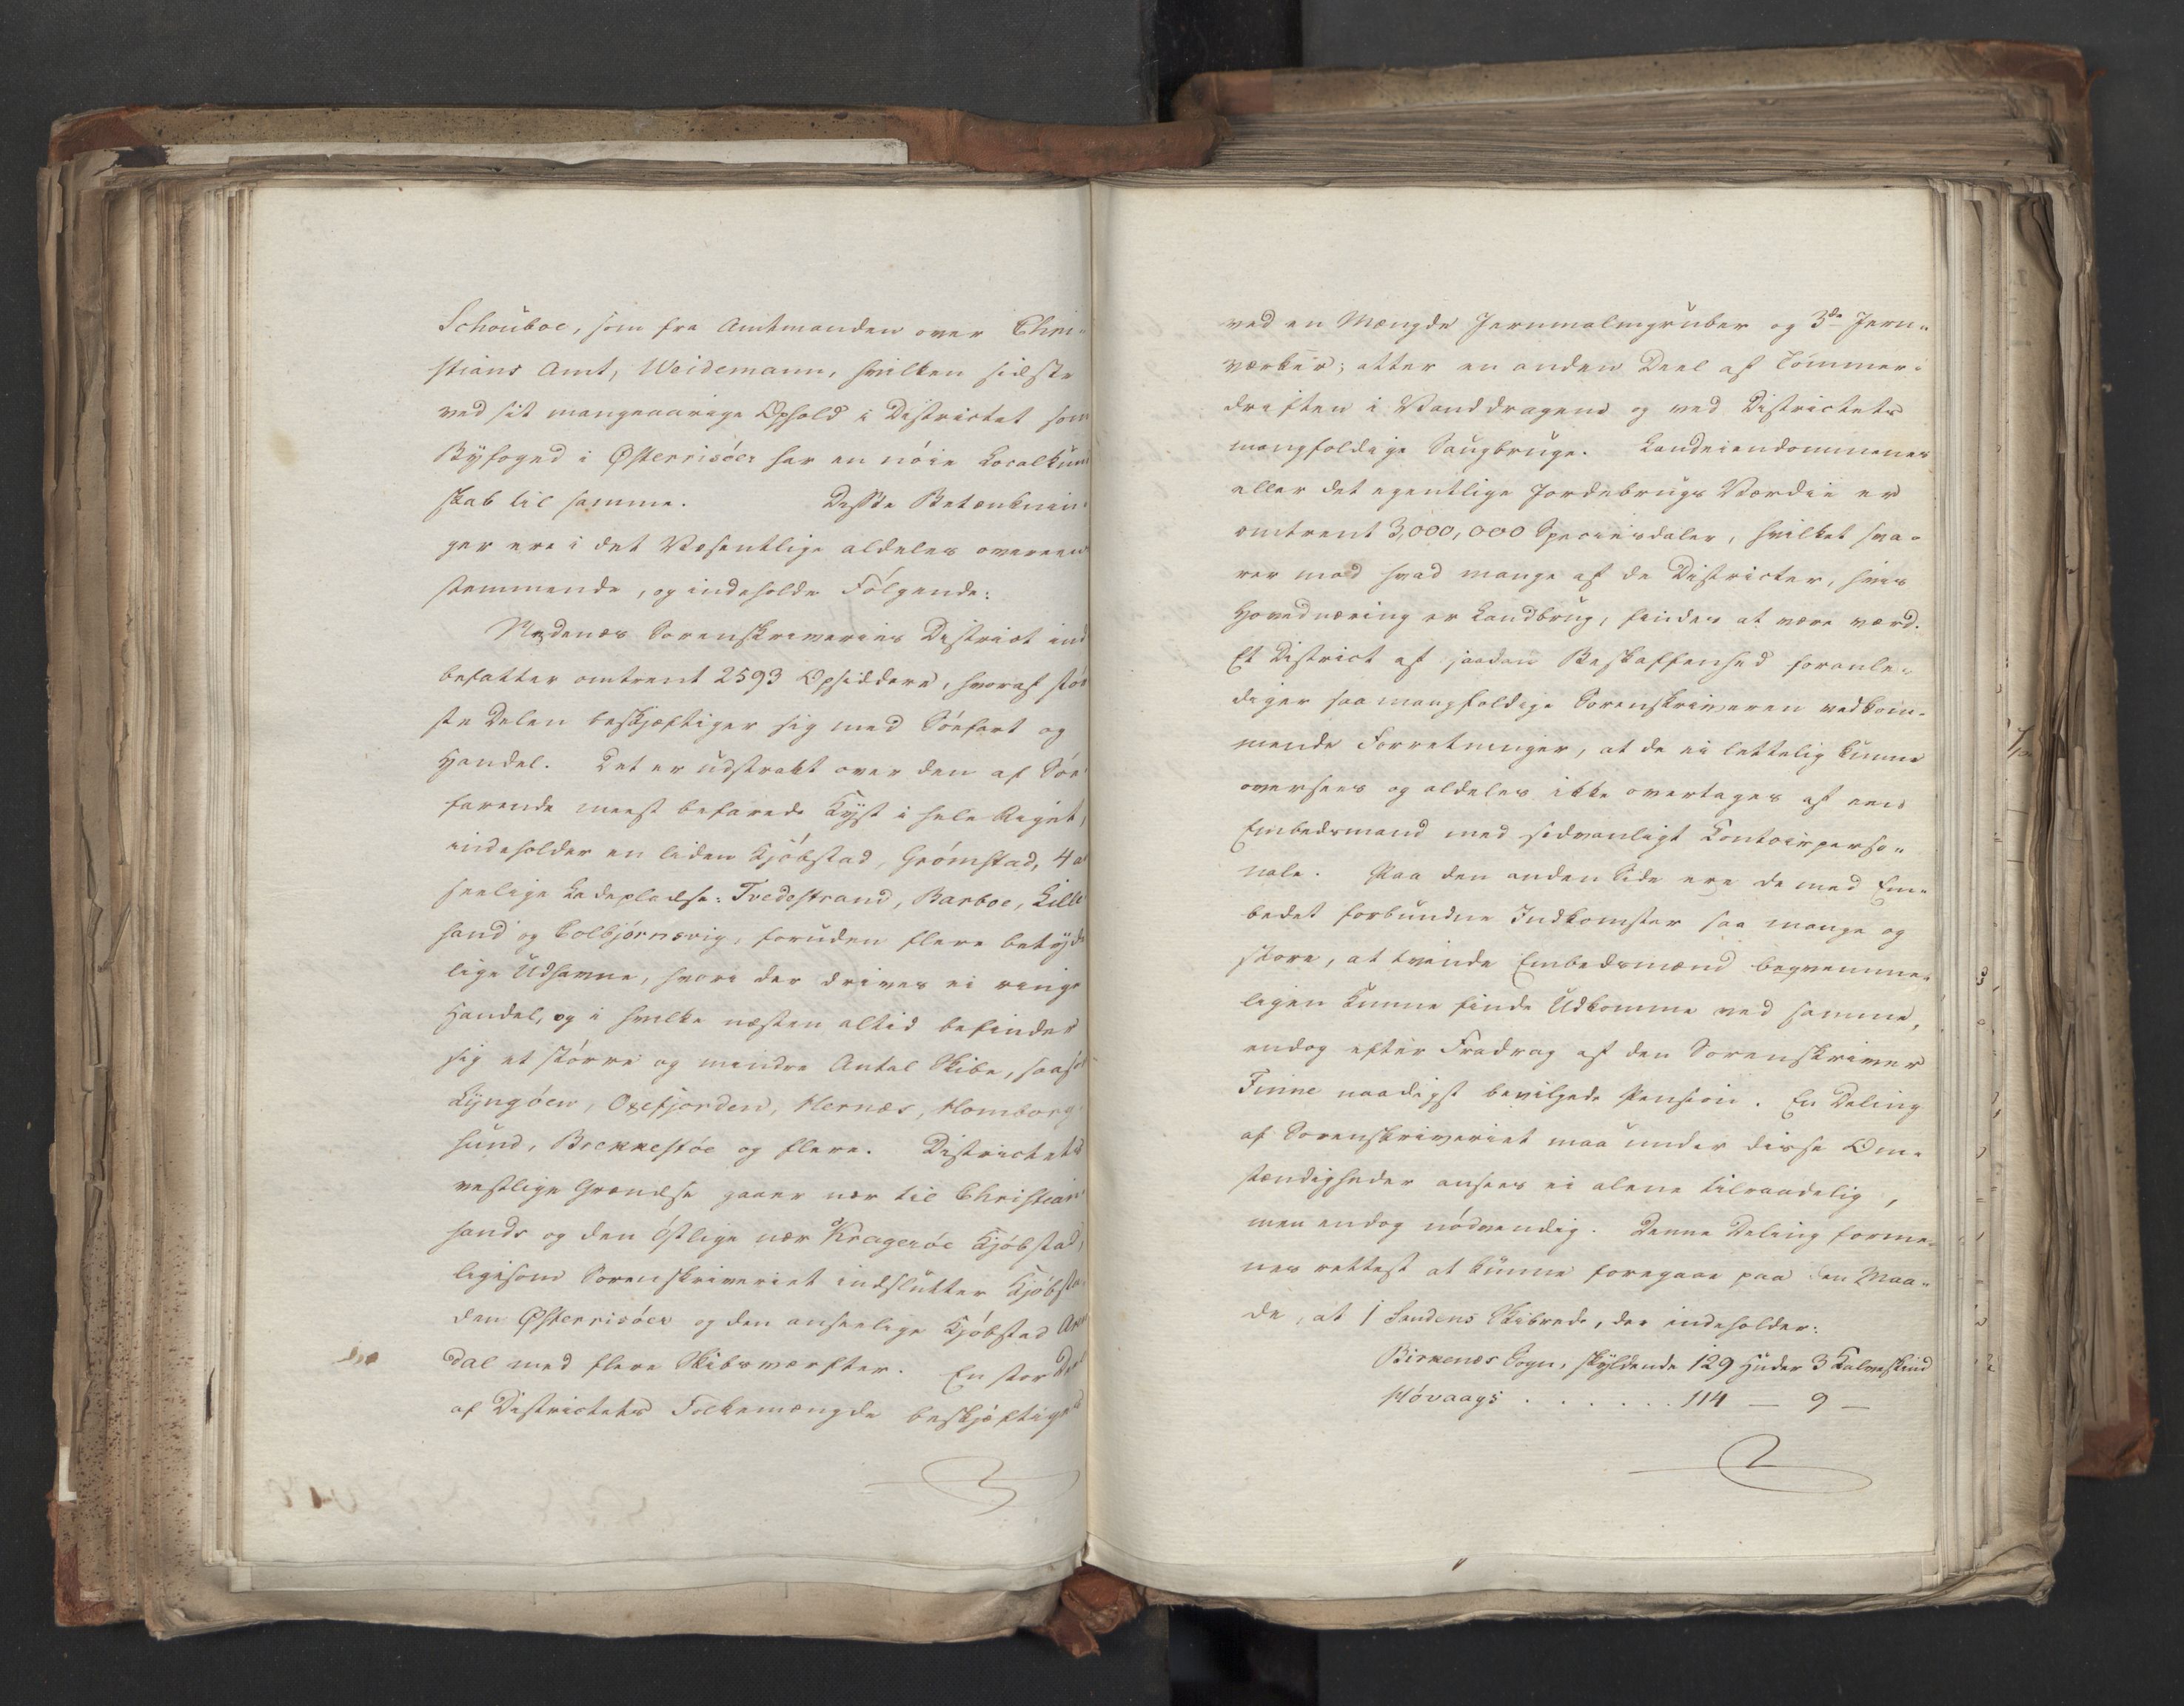 Schouboe, som fra Amtmanden over Chri-
stians Amt, Weidemann, hvilken sidste
ved sit mangeaarige Ophold i Districtet som
Byfoged i Østerrisöer har en nöie Localkund
skab til samme. Disse Betænknin-
ger ere i det Væsentlige aldeles overeens
stemmende, og indeholde Fölgende:
Nedenæs Sorenskriveries District ind
befatter omtrent 2593 Opsiddere, hvoraf stör
ste Delen beskjæftiger sig med Söefart og
Handel. Det er udstrakt over den af Söe
farende meest befarede Kyst i hele Riget,
indeholder en liden Kjöbstad, Grömstad, 4 an
seelige Ladepladse: Tvedestrand, Barboe, Lille
sand og Colbjörnsvig, foruden flere betyde
lige Udhavne, hvori der drives ei ringe
Handel, og i hvilke næsten altid befinder
sig et större og mindre Antal Skibe, saasom
Lyngöen, Oxefjorden, Hernæs, Homborg-
sund, Brekkestöe og flere. Districtets
vestlige Grændse gaaer nær til Christian-
sands og den östlige nær Krageröe Kjöbstad,
ligesom Sorenskriveriet indslutter Kjöbsta-
den Østerrisöer og den anseelige Kjöbstad Aren
dal med flere Skibsværfter. En stor Deel
af Districtets Folkemængde beskjæftiges
ved en Mængde Jernmalmgruber og 3de Jern-
værker; atter en anden Deel af Tömmer-
driften i Vanddragene og ved Districtets
mangfoldige Saugbruge. Landeiendommenes
eller det egentlige Jordebrugs Værdie er
omtrent 3,000,000 Speciesdaler, hvilket sva-
rer mod hvad mange af de Districter, hvis
Hovednæring er Landbrug, findes at være værd.
Et District af saadan Beskaffenhed foranle-
diger saa mangfoldige Sorenskriveren vedkom-
mende Forretninger, at de ei lettelig kunne
oversees og aldeles ikke overtages af een
Embedsmand med sædvanligt Contoirperso-
nale. Paa den anden Side ere de med Em-
bedet forbundne Indkomster saa mange og
store, at tvende Embedsmænd beqvemme-
ligen kunne finde Udkomme ved samme,
endog efter Fradrag af den Sorenskriver
Finne naadigst bevilgede Pension. En Deling
af Sorenskriveriet maa under disse Om-
stændigheder ansees ei alene tilraadelig,
men endog nödvendig. Denne Deling forme-
nes rettest at kunne foregaae paa den Maa-
de, at 1 Sandens Skibrede, der indeholder:
Birkenæs Sogn, skyldende 129 Huder 3 Kalveskind
Hövaags . . . . . . 114 — 9 —